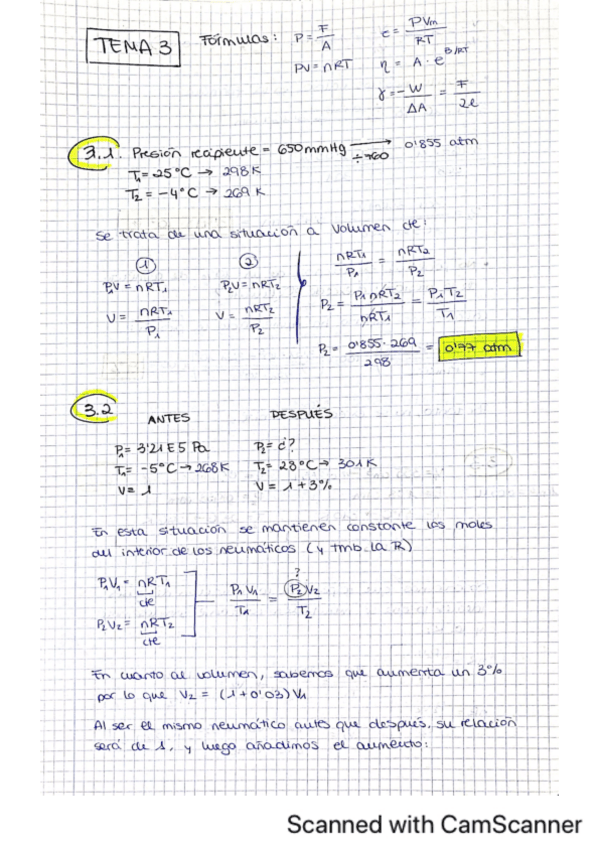 TEMA 3
Fórmulas: P = F/A
z = PVm/RT
PV = nRT
η = A · e^B/RT
γ = -W/ΔA = F/2l
3.1. Presión recipiente = 650 mmHg → ÷760 0'855 atm
T1 = 25°C → 298K
T2 = -4°C → 269K
Se trata de una situación a volumen cte:
① ②
P1V = nRT1 P2V = nRT2
V = nRT1/P1 V = nRT2/P2
nRT1/P1 = nRT2/P2
P2 = P1nRT2/nRT1 = P1T2/T1
P2 = 0'855·269/298 = 0'77 atm
3.2 ANTES DESPUÉS
P1 = 3'21E5 Pa P2 = ¿?
T1 = -5°C → 268K T2 = 28°C → 301K
V = 1 V = 1+3%
En esta situación se mantienen constante los moles
del interior de los neumáticos (y tmb la R)
P1V1 = nRT1
cte
P2V2 = nRT2
cte
P1V1/T1 = P2V2/T2
?
En cuanto al volumen, sabemos que aumenta un 3%
por lo que V2 = (1+0'03)V1
Al ser el mismo neumático antes que después, su relación
será de 1, y luego añadimos el aumento:
Scanned with CamScanner